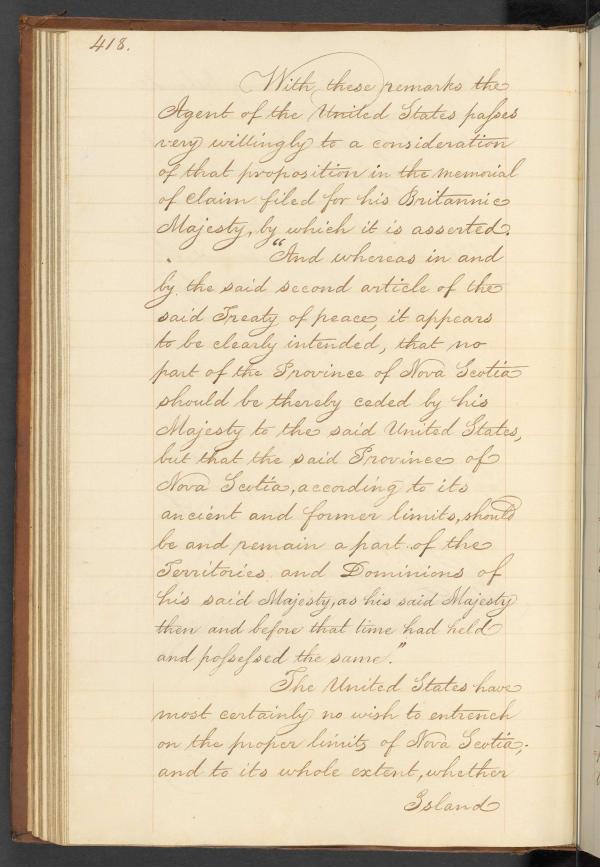 418.
With these remarks the
Agent of the United States passes
very willingly to a consideration
of that proposition in the memorial
of claim filed for his Britannic
Majesty, by which it is asserted.
"And whereas in and
by the said second article of the
said Treaty of peace, it appears
to be clearly intended, that no
part of the Province of Nova Scotia
should be thereby ceded by his
Majesty to the said United States,
but that the said Province of
Nova Scotia, according to its
ancient and former limits, should
be and remain a part of the
Territories and Dominions of
his said Majesty, as his said Majesty
then and before that time had held
and possessed the same."
The United States have
most certainly no wish to entrench
on the proper limits of Nova Scotia;
and to its whole extent, whether
Island